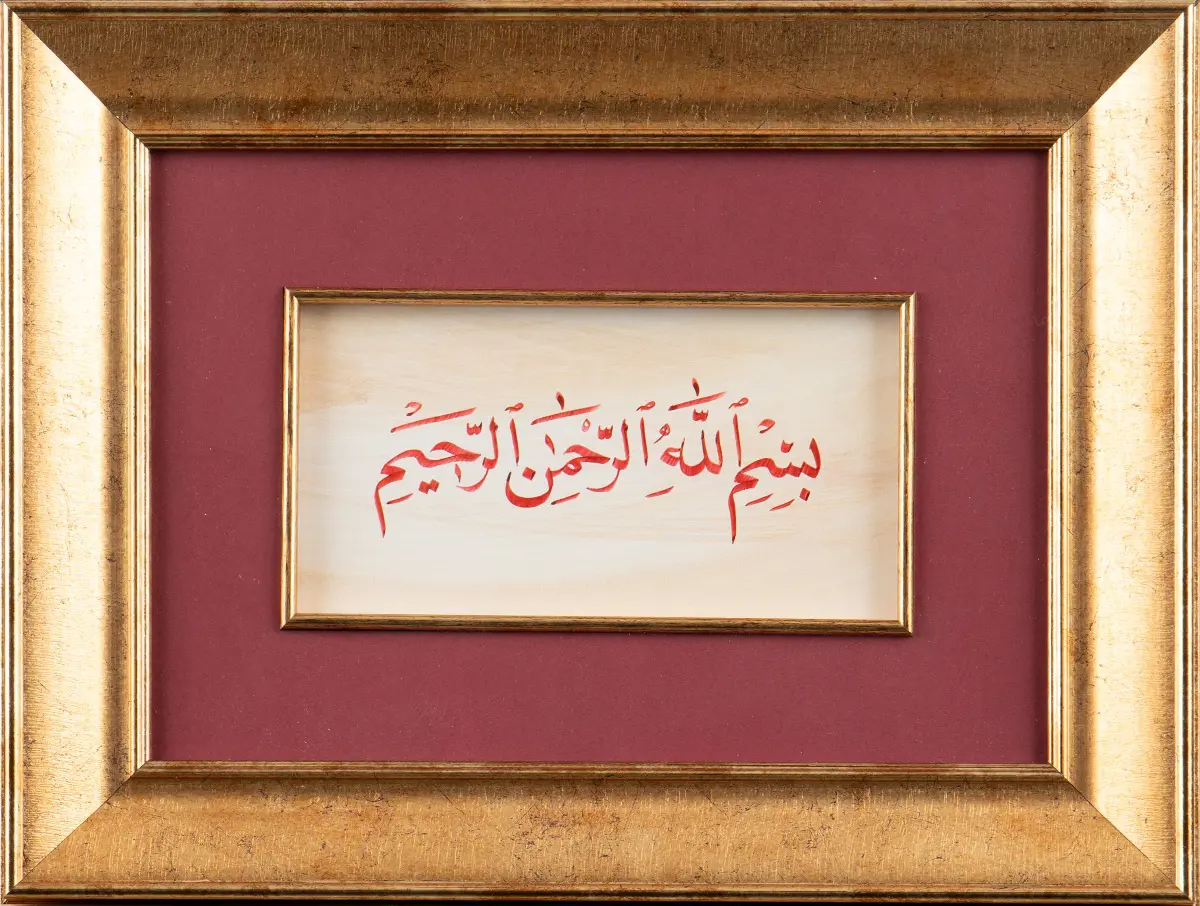 بِسْمِ ٱللَّٰهِ ٱلرَّحْمَٰنِ ٱلرَّحِيْمِ